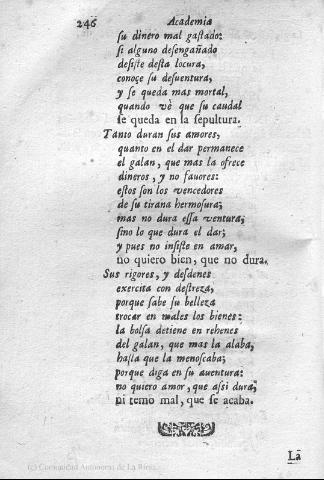 246 Academia
su dinero mal gastado:
si alguno desengañado
desiste desta locura,
conoçe su desuentura,
y se queda mas mortal,
quando vè que su caudal
se queda en la sepultura.
Tanto duran sus amores,
quanto en el dar permanece
el galan, que mas la ofrece
dineros, y no fauores:
estos son los vencedores
de su tirana hermosura;
mas no dura essa ventura,
sino lo que dura el dar;
y pues no insiste en amar,
no quiero bien, que no dura.
Sus rigores, y desdenes
exercita con destreza,
porque sabe su belleza
trocar en males los bienes:
la bolsa detiene en rehenes
del galan, que mas la alaba,
hasta que la menoscaba;
porque diga en su auentura:
no quiero amor, que assi dura,
ni temo mal, que se acaba.
La
(c) Comunidad Autónoma de La Rioja